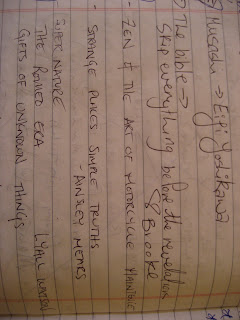 Musashi → Eiji Yoshikawa
The bible →
Skip everything before the revelations
Brooke
- ZEN & THE ART OF MOTORCYCLE
- STRANGE PLACES SIMPLE TRUTHS
- AINSLEY MEARS
SUPER NATURE
THE ROMEO ERA LYALL WATSON
GIFTS OF UNKNOWN THINGS